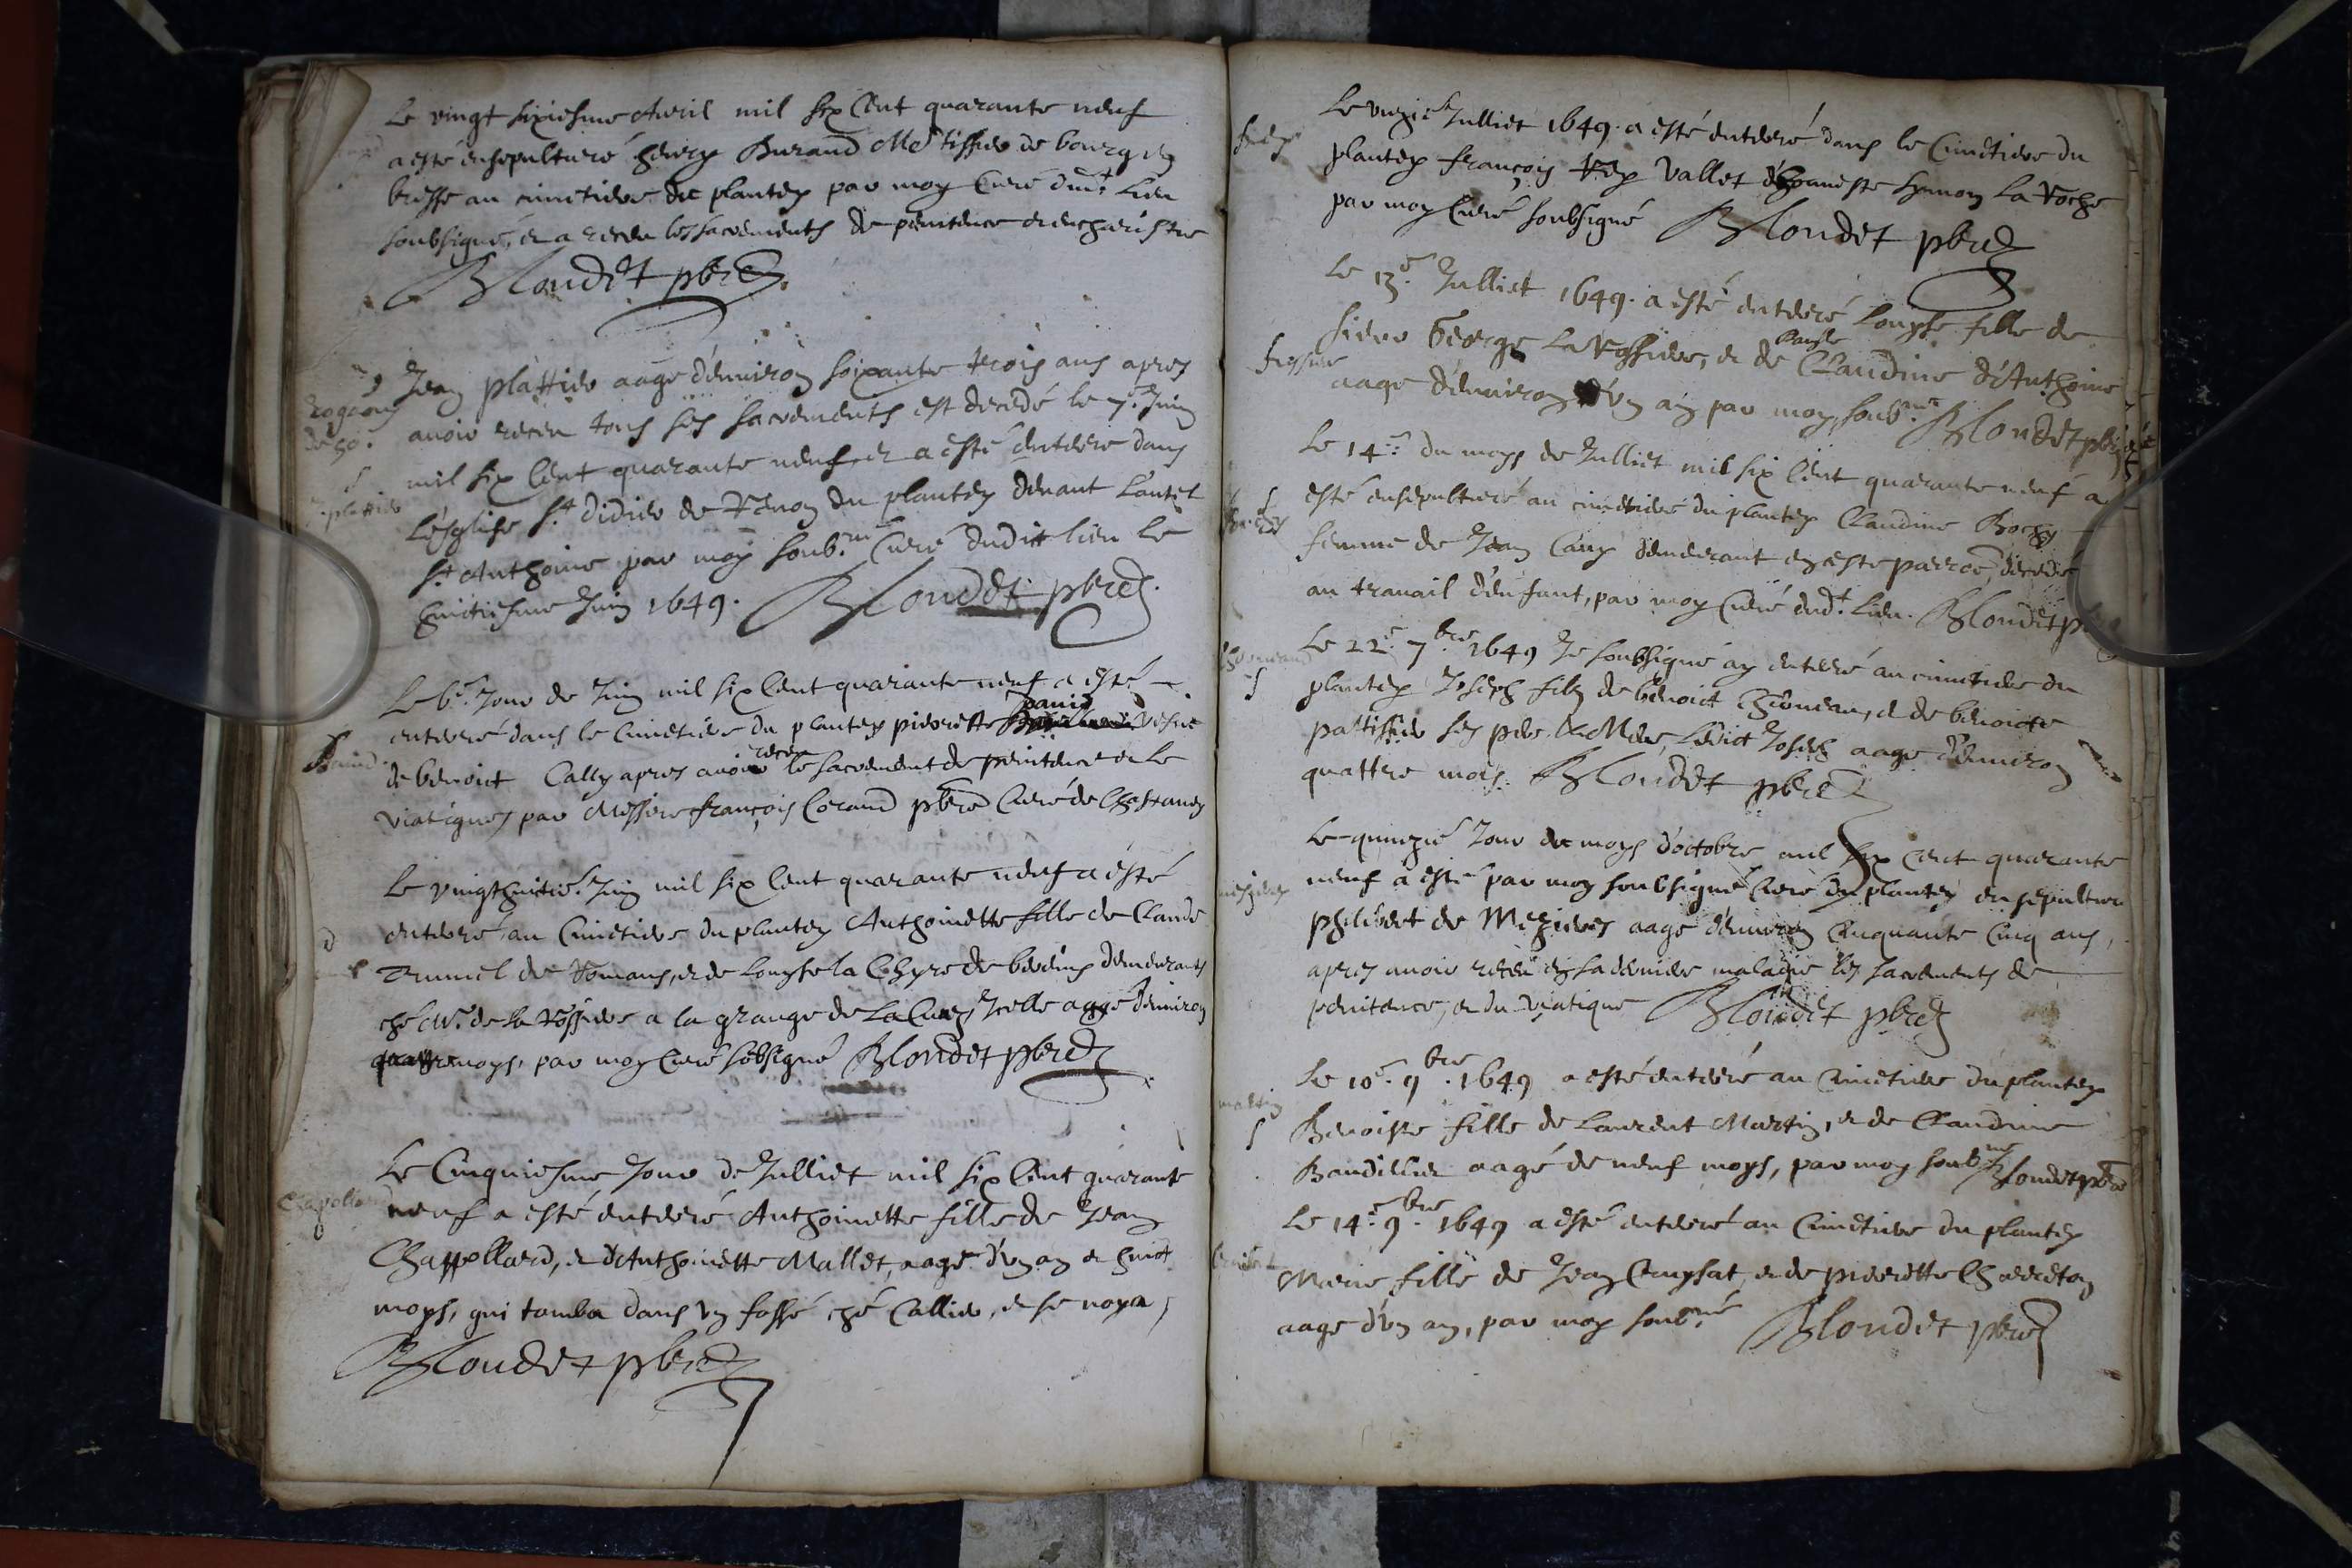 Le vingt sixiesme Avril mil six cent quarante neuf
a esté ensepulturé henry Burand Me tissier de bourg en
bresse au cimetiere du plantey par moy Curé dudt Lieu
soubsigné, et a receu les sacrements de penitence et eucharistie
Blondet pbre
Jean plattier aagé d'environ soixante trois ans apres
avoir receu tous ses sacrements est decedé le 7e Juin
mil six Cent quarante neuf, et a esté enterré dans
L'esglise St didier de Renon du plantey devant L'autel
St Anthoine par moy soub.né Curé dudit lieu le
huictiesme Juin 1649. Blondet pbre
Le 6e Jour de Juin mil six Cent quarante neuf a esté
enterré dans le Cimetiere du plantey pierrette vefve
de benoict Cally apres avoir receu le sacrement de penitence et le
viatique, par Messire françois Corand pbre Curé de Chastenay
Le vingthuictie Juin mil six Cent quarante neuf a esté
enterré au Cimetiere du plantey Anthoinette fille de Claude
de Romans, et de Louyse la demeurants
ché Mr de la Rossiere a la grange de La Cua, Icelle aagé d'environ
quatre moys, par moy Curé sobsigné Blondet pbre
Chapollard
Le Cinquiesme Jour de Julliet mil six Cent quarante
neuf a esté enterré Anthoinette fille de Jean
Chappollard, et d'Anthoinette Mallet, aagé d'un an et huict
moys, qui tomba dans un fossé ché Callier, et se noya,
Blondet pbre
Le unzie Julliet 1649. a esté enterré dans le Cimetiere du
plantey françois Rey Vallet d'honneste hymon La Roche
par moy Curé soubsigné Blondet pbre
Le 13e Julliet 1649. a esté enterré Louyse fille de
sieur George La Rossiere, et de Claudine d'Anthoine
aagé d'environ d'un an par moy, soub.né Blondet pbre
Le 14e du moys de Julliet mil six Cent quarante neuf a
esté ensepulturé au cimetiere du plantey Claudine Bochy
femme de Jean Cany demeurant en ceste parroe, decedé
au travail d'enfant, par moy Curé dudt Lieu. Blondet pbre
Le 22e 7bre 1649 Je soubsigné ay enterré au cimetiere du
plantey Joseph filz de benoict Thomeau, et de benoicte
pattissier ses pere & Mere, Ledict Joseph aagé d'environ
quattre mois. Blondet pbre
Le quinzie Jour du moys d'octobre mil six cent quarante
neuf a esté par moy soubsigné Curé du plantey ensepulturé
philibert de Mezieres aagé d'environ Cinquante Cinq ans,
apres avoir receu en sa derniere maladie les sacrements de
penitence, et du viatique Blondet pbre
martin
Le 10e 9bre 1649 a esté enterré au Cimetiere du plantey
Benoiste fille de Laurent Martin, et de Claudine
Baudillier aagé de neuf moys, par moy soubné Blondet pbre
Le 14e 9bre 1649 a esté enterré au Cimetiere du plantey
Marie fille de Jean Cruysat, et de pierrette Charreton
aagé d'un an, par moy soub.né Blondet pbre